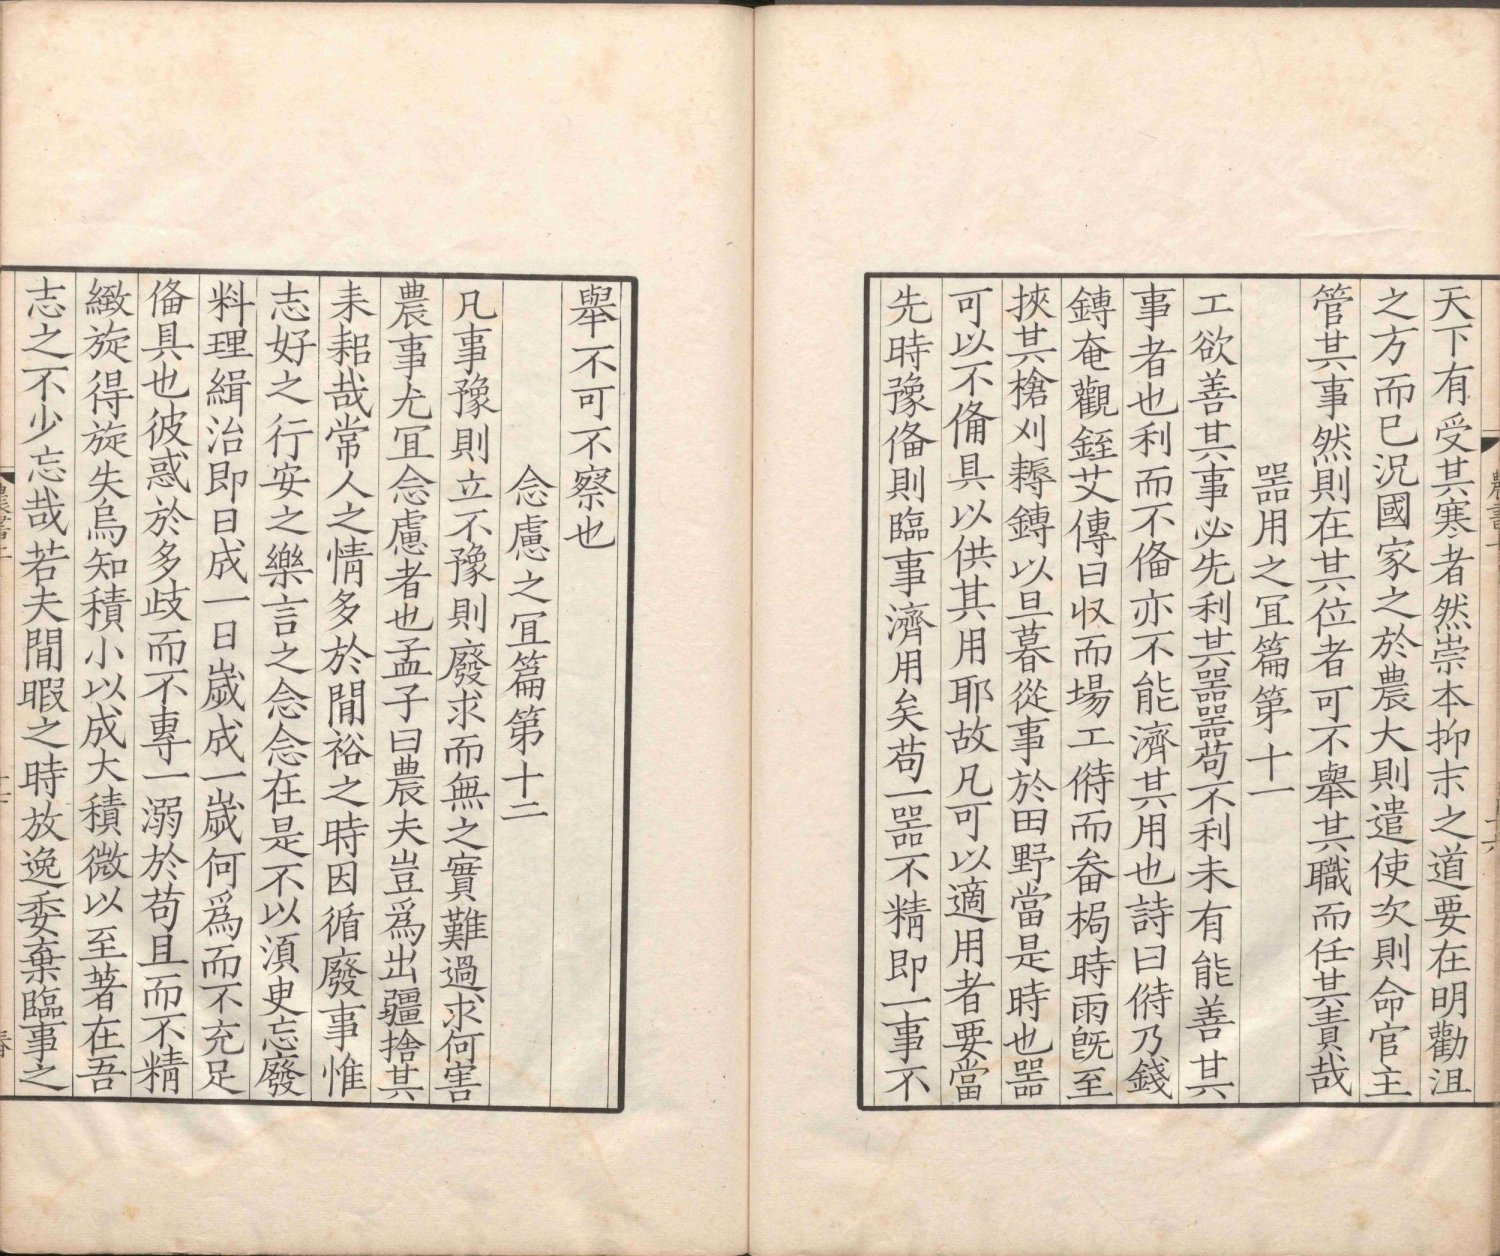 天下有受其寒者然崇本抑末之道要在明勸沮
之方而已況國家之於農大則遣使次則命官主
管其事然則在其位者可不舉其職而任其責哉
器用之宜篇第十一
工欲善其事必先利其器器苟不利未有能善其
事者也利而不俻亦不能濟其用也詩曰偫乃錢
鎛奄觀銍艾傳曰収而場工偫而畚梮時雨旣至
挾其槍刈耨鎛以旦暮從事於田野當是時也器
可以不俻具以供其用耶故凡可以適用者要當
先時豫俻則臨事濟用矣苟一器不精即一事不
舉不可不察也
念慮之宜篇第十二
凡事豫則立不豫則廢求而無之實難過求何害
農事尤宜念慮者也孟子曰農夫豈爲出疆捨其
耒耜哉常人之情多於閒裕之時因循廢事惟
志好之行安之樂言之念念在是不以湏史忘廢
料理緝治即日成一日嵗成一嵗何爲而不充足
俻具也彼惑於多歧而不專一溺於苟且而不精
緻旋得旋失烏知積小以成大積微以至著在吾
志之不少忘哉若夫閒暇之時放逸委棄臨事之